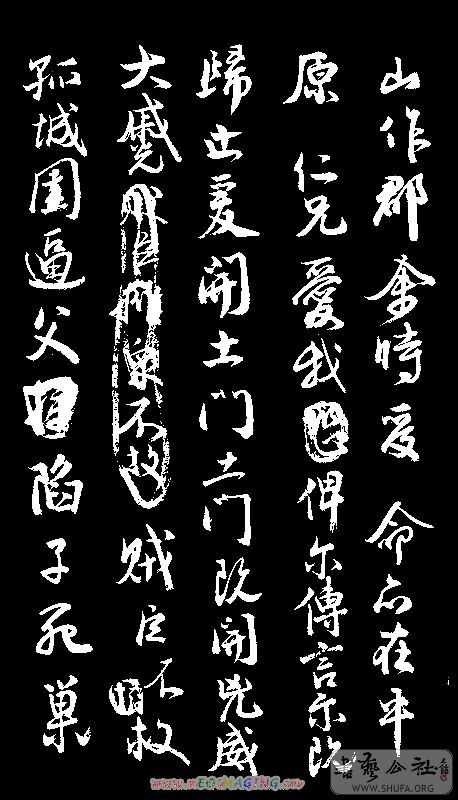 山作郡余時受 命亦在平
原 仁兄愛我俾尔傳言尔既
歸止爰開土門土門既開兇威
大蹙賊臣擁衆不救賊臣不救
孤城圍逼父陷子死巢
書藝公社
WWW.SHUFA.ORG